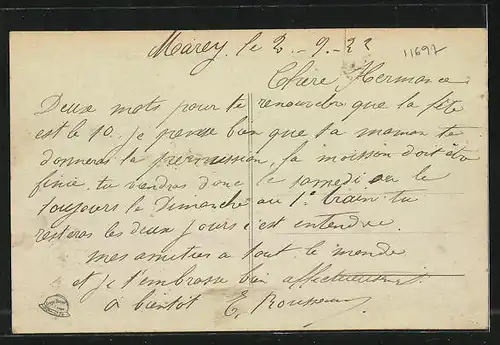 Marey le 2-9-22
11691
Chère Hermance
Deux mots pour te renouveler que la fête
est le 10. je pense bien que ta maman te
donneras la permission, la moisson doit être
finie. tu viendras donc le samedi ou le
toujours le Dimanche au 1e train. tu
resteras les deux jours c'est entendue.
mes amitiés a tout le monde
et je t'embrasse bien affectueusement
a bientot E. Rousseau